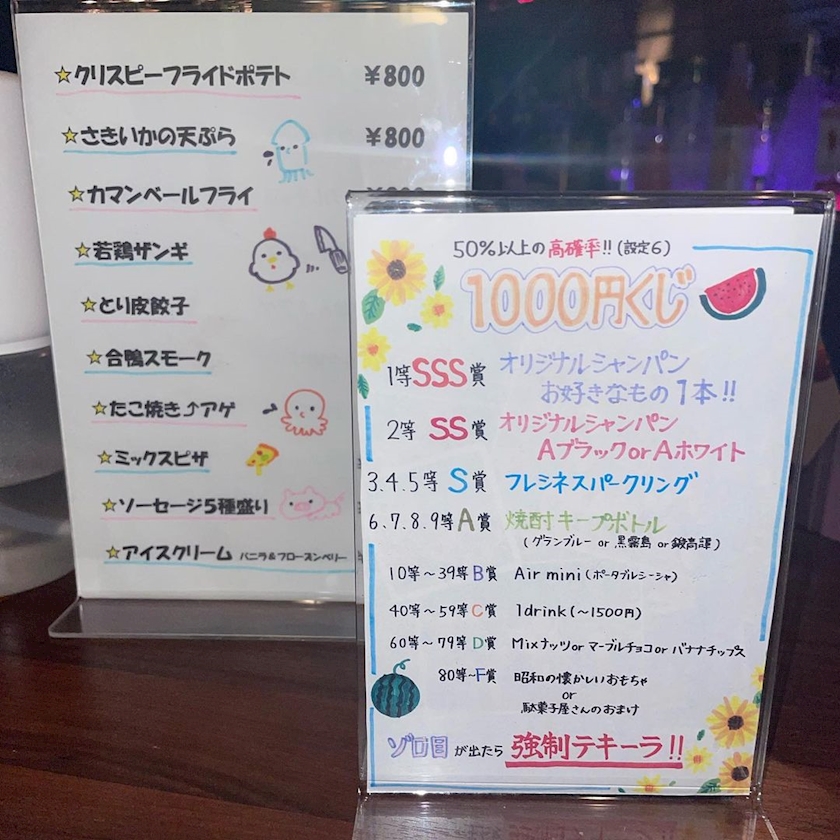 ☆クリスピーフライドポテト ¥800
☆さきいかの天ぷら ¥800
☆カマンベールフライ
☆若鶏ザンギ
☆とり皮餃子
☆合鴨スモーク
☆たこ焼き⤴アゲ
☆ミックスピザ
☆ソーセージ5種盛り
☆アイスクリーム バニラ&フローズンベリー
50%以上の高確率!!(設定6)
1000円くじ
1等SSS賞 オリジナルシャンパン
お好きなもの1本!!
2等 SS賞 オリジナルシャンパン
AブラックorAホワイト
3.4.5等 S賞 フレシネスパークリング
6.7.8.9等A賞 焼酎キープボトル
(グランブルー or 黒霧島 or 鍛高譚)
10等~39等B賞 Air mini(ポータブルシーシャ)
40等~59等C賞 1drink(~1500円)
60等~79等D賞 Mixナッツorマーブルチョコorバナナチップス
80等~F賞 昭和の懐かしいおもちゃ
or
駄菓子屋さんのおまけ
ゾロ目が出たら強制テキーラ!!